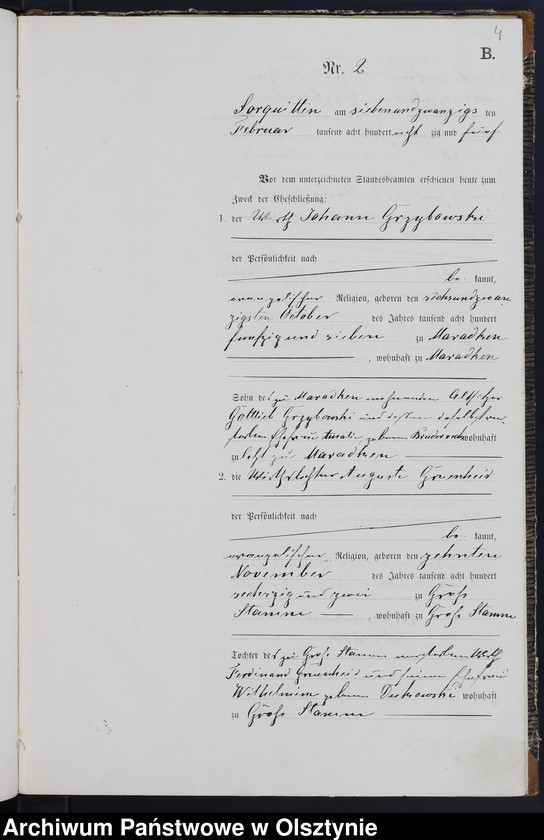 4
B.
Nr. 2
Sorquitten am siebenundzwanzigs ten
Februar tausend acht hundert acht zig und fünf
Vor dem unterzeichneten Standesbeamten erschienen heute zum
Zweck der Eheschließung:
1. der Wirth Johann Grzybowski
der Persönlichkeit nach
be kannt,
evangelischer Religion, geboren den sechsundzwan
zigsten October des Jahres tausend acht hundert
fünfzig und sieben zu Maradken
, wohnhaft zu Maradken
Sohn des zu Maradken wohnenden Altsitzer
Gottlieb Grzybowski und dessen daselbst ver
storbenen Ehefrau geborene wohnhaft
zuletzt zu Maradken
2. die Wirthstochter Auguste Gruenheid
der Persönlichkeit nach
be kannt,
evangelischer Religion, geboren den zehnten
November des Jahres tausend acht hundert
sechszig und zwei zu Groß
Stamm , wohnhaft zu Groß Stamm
Tochter des zu Groß Stamm verstorbenen Wirth
Ferdinand Gruenheid und seiner Ehefrau
Wilhelmine geborene wohnhaft
zu Groß Stamm
Archiwum Państwowe w Olsztynie